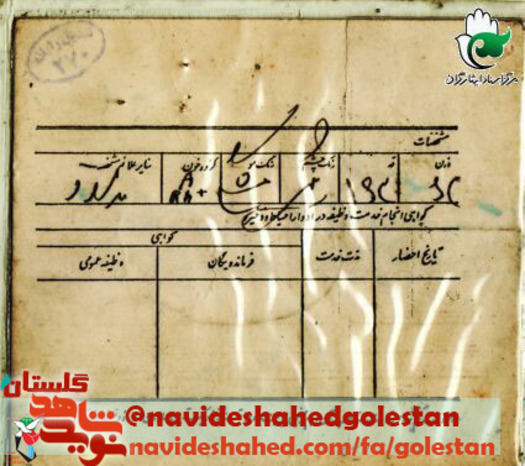 مرکز اسناد ایثارگران
۲۷۰
مشخصات
وزن قد رنگ چشم رنگ مو گروه خون سایر علائم مشخصه
A Rh+ ندارد
گواهی انجام خدمت وظیفه در ادوار احتیاط و ذخیره
تاریخ احضار مدت خدمت گواهی
فرمانده یگان وظیفه عمومی
گلستان
نوید شاهد
@navideshahedgolestan
navideshahed.com/fa/golestan